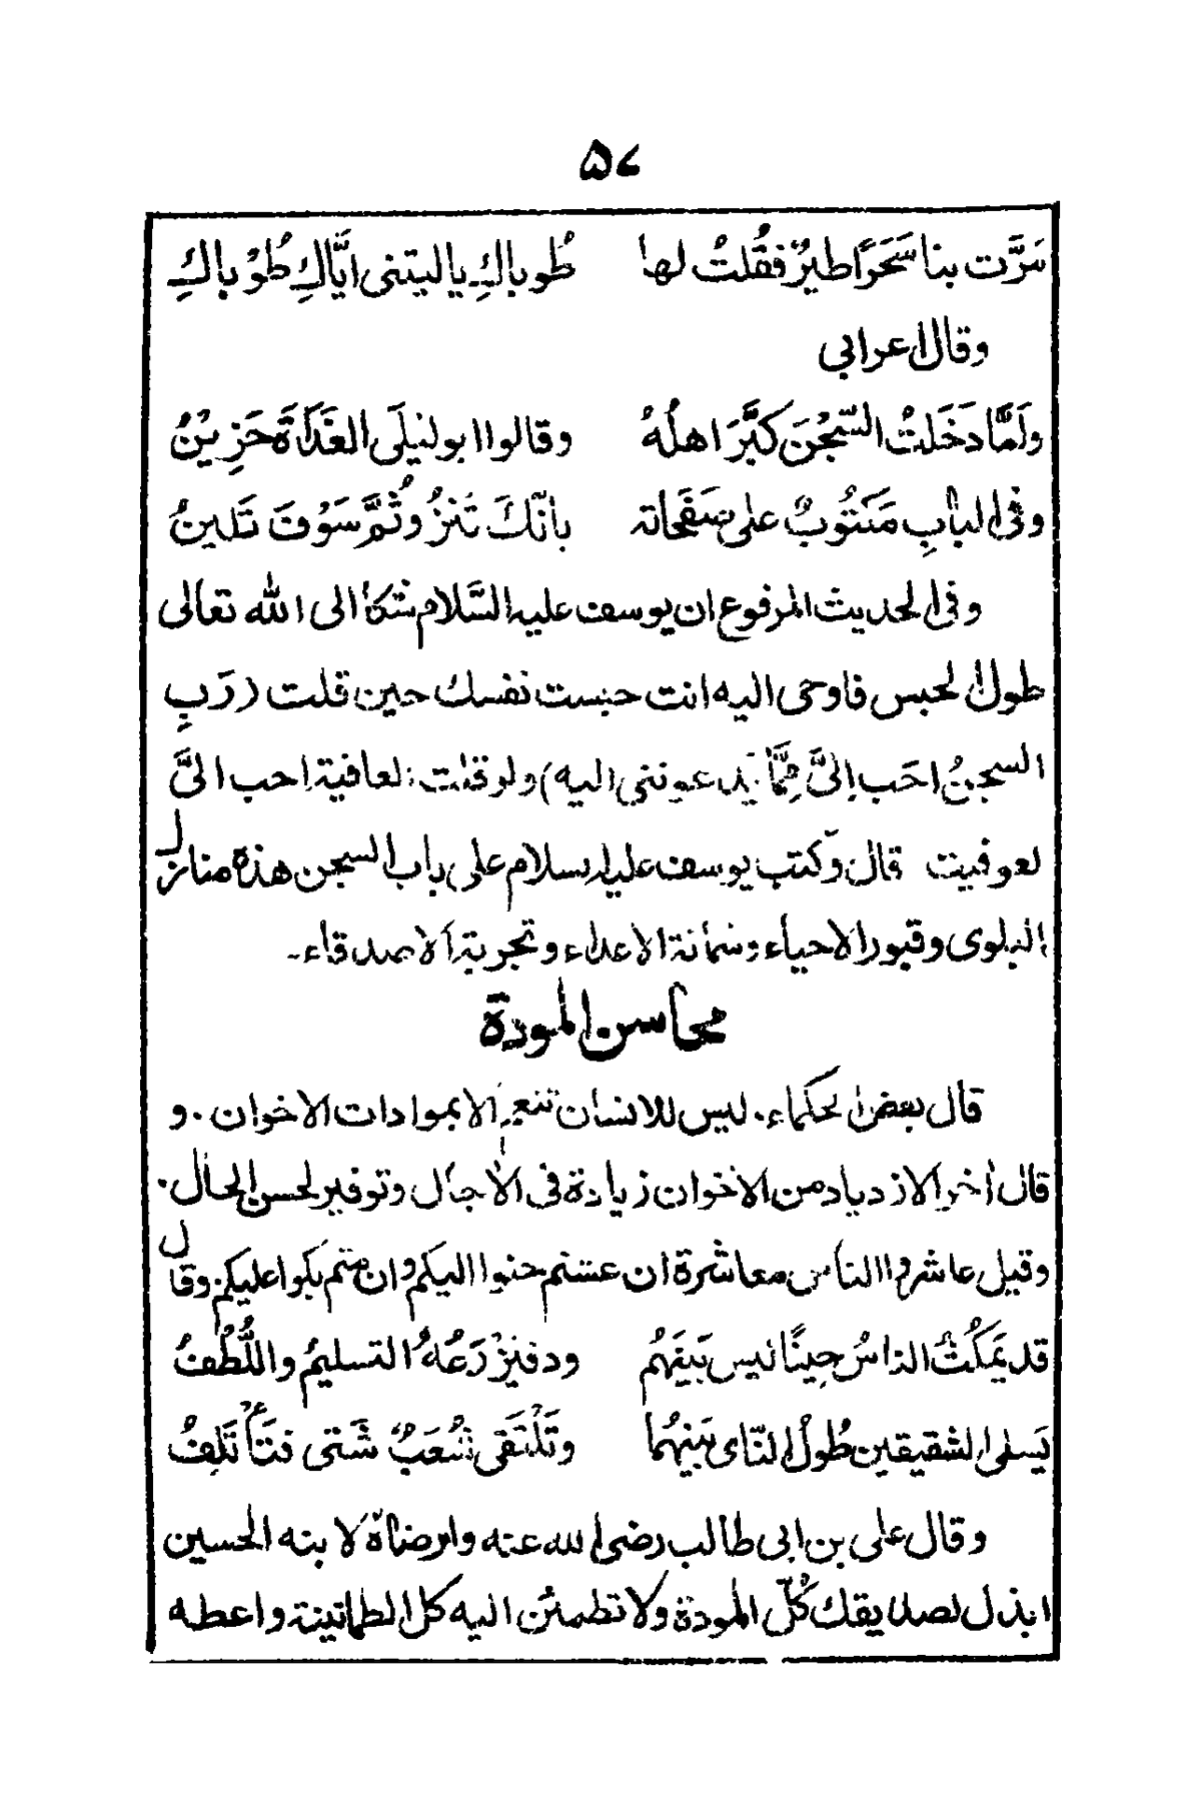 ۵۷
مَرَّت بنا سَحَرًا طيرٌ فقُلتُ لها طُوباكِ يا ليتنى ايَّاكِ طُوْباكِ
وقال اعرابى
ولَمَّا دَخَلتُ السّجْنَ كبَّرَ اهلُهُ وقالوا ابو ليلَى الغَدَاةَ حَزِيْنُ
وفى البابِ مَكتُوبٌ على صَفَحاته بانّكَ تَنْزُو ثُمَّ سَوْفَ تَلينُ
وفى الحديث المرفوع ان يوسف عليه السَّلام شكا الى الله تعالى
طول الحبس فاوحى اليه انت حبست نفسك حين قلت (رَبِ
السجنُ احَب اِلىَّ مِمَّا يدعوننى اليه) ولو قلت العافية احب الىَّ
لعوفيت قال وكتب يوسف عليه السلام على باب السجن هذه منازل
البلوى وقبور الاحياء وشماتة الاعداء وتجربة الاصدقاء۔
محاسن المودة
قال بعض الحكماء. ليس للانسان تنعم الا بموادات الاخوان. و
قال اخر الازدياد من الاخوان زيادة فى الاجال وتوفير لحسن الحال.
وقيل عاشروا الناس معاشرة ان عشتم حنوا اليكم وان متم بكوا عليكم وقال
قد يَمكُثُ الناسُ حِينًا ليس بَينَهُم ود فيَزْرَعُهُ التسليمُ واللُّطُفُ
يَسلى الشقيقين طُولُ النّاى بَينهُما وتَلْتَقى شُعَبٌ شَتى فتَأتَلِفُ
وقال على بن ابى طالب رضى الله عنه وارضاه لابنه الحسين
ابذل لصديقك كُلّ المودة ولا تطمئن اليه كل الطمانينة واعطه